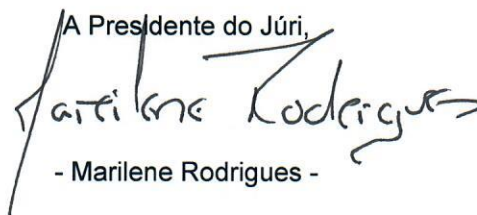 A Presidente do Júri,
Marilene Rodrigues
- Marilene Rodrigues -